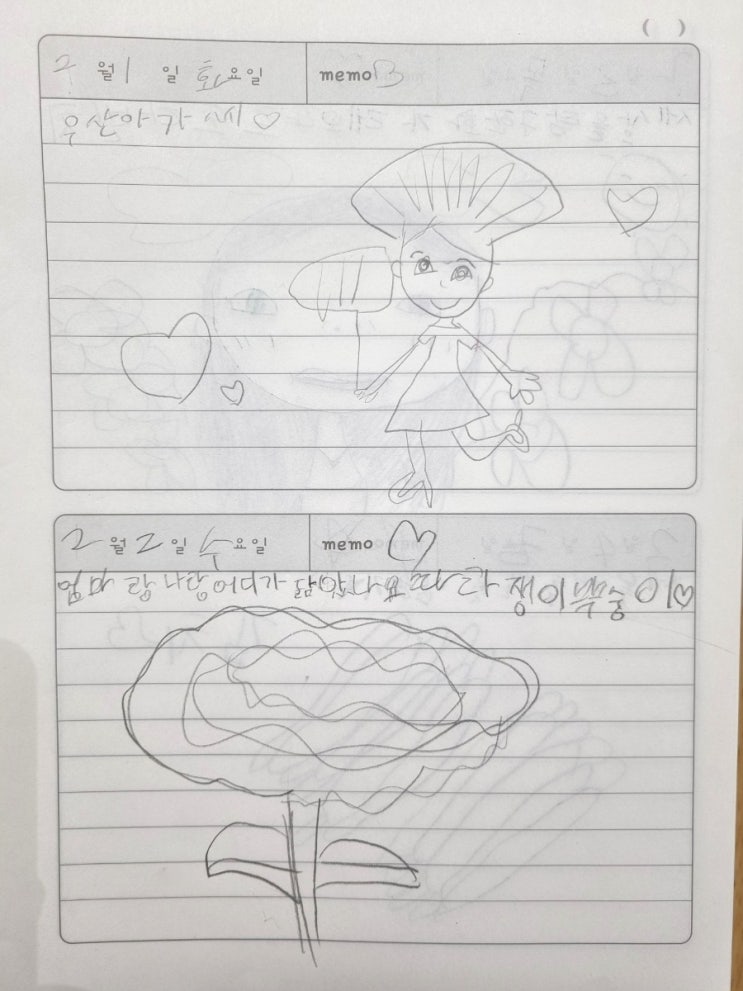 ( )
2월 1일 화요일 memo ♡
우산아가씨 ♡
2월 2일 수요일 memo ♡
엄마 랑 나랑 어디가 닮았나요 쟁이 이♡